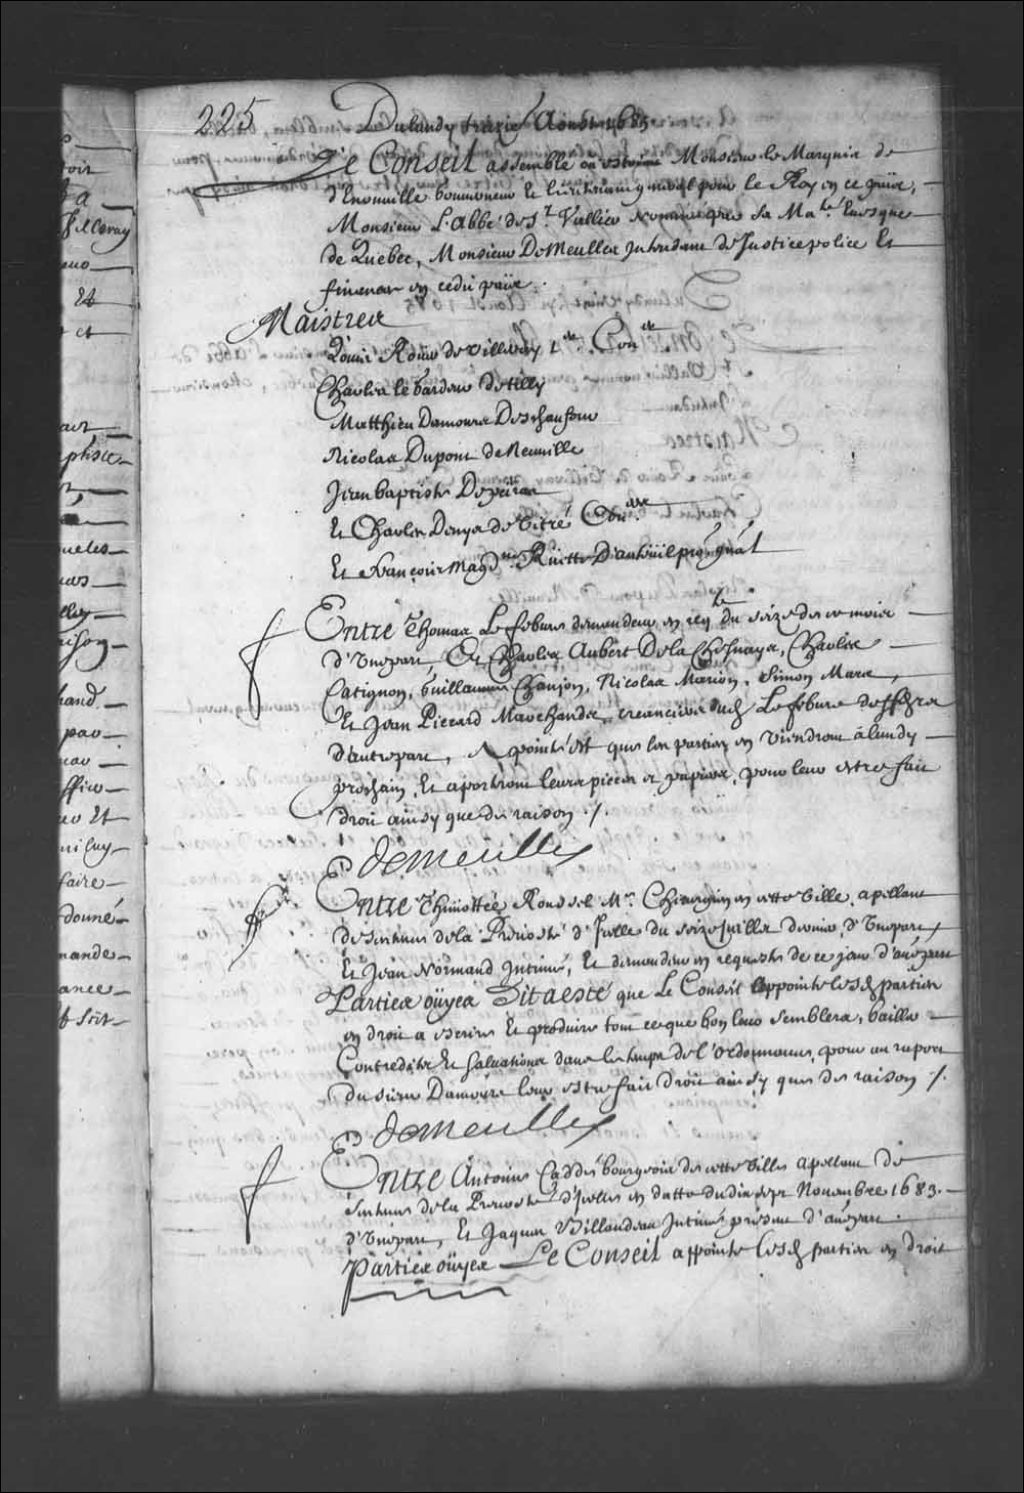 225
Du lundy treizie Aoust 1685
Le Conseil assemblé ou estoient Monsieur le Marquis de
d'Enonuille Gouuerneur et lieutenant general pour le Roy en ce païs,
Monsieur L'abbé de St. Vallier nommé par sa Mate. Euesque
de Quebec, Monsieur DeMeulles Intendant de Justice police Et
finances en cedit païs.
Maistres
Loüis Roüer de Villeray 1er. Coner
Charles le Gardeur de Tilly
Matthieu Damours Deschaufour
Nicolas Dupont de Neuuille
Jean baptiste Depeiras
Et Charles Denys de Vitré Coners
Et François Magdne. Ruëtte D'auteüil pro. gnal
Entre Thomas Lefebure demandeur en reqte du seize de ce mois
d'Vnepart, Et Charles Aubert Dela Chesnaye, Charles
Catignon, Guillaume Chanjon, Nicolas Marion, Simon Mars,
Et Jean Piccard Marchands, creanciers dud Lefebure deffrs
d'autrepart, Apointé est que les parties en viendront à lundy
prochain, Et aporteront leurs pieces et papiers, pour leur estre fait
droit ainsy que de raison ./.
demeulles
Entre Thimottée Roussel Me. Chirurgien en cette Ville, apellant
de sentence dela Preuosté d'Icelle du seize Juillet dernier, d'Vnepart
Et Jean Normand Intimé, Et demandeur en requeste de ce jour d'autrepart
Parties oüyes Dit a esté que Le Conseil Appointe lesd parties
en droit a escrire Et produire tout ce que bon leur semblera, bailler
Contredits Et saluations dans les temps de l'ordonnance, pour au raport
du sieur Damours leur estre fait droit ainsy que de raison ./.
demeulles
Entre Antoine Caddé bourgeois de cette Ville apellant de
sentence dela Preuosté d'Icelle en datte du dix sept Nouembre 1683.
d'Vnepart, Et Jaques Villandeau Intimé present d'autrepart.
Parties oüyes Le Conseil appointe lesd parties en droit